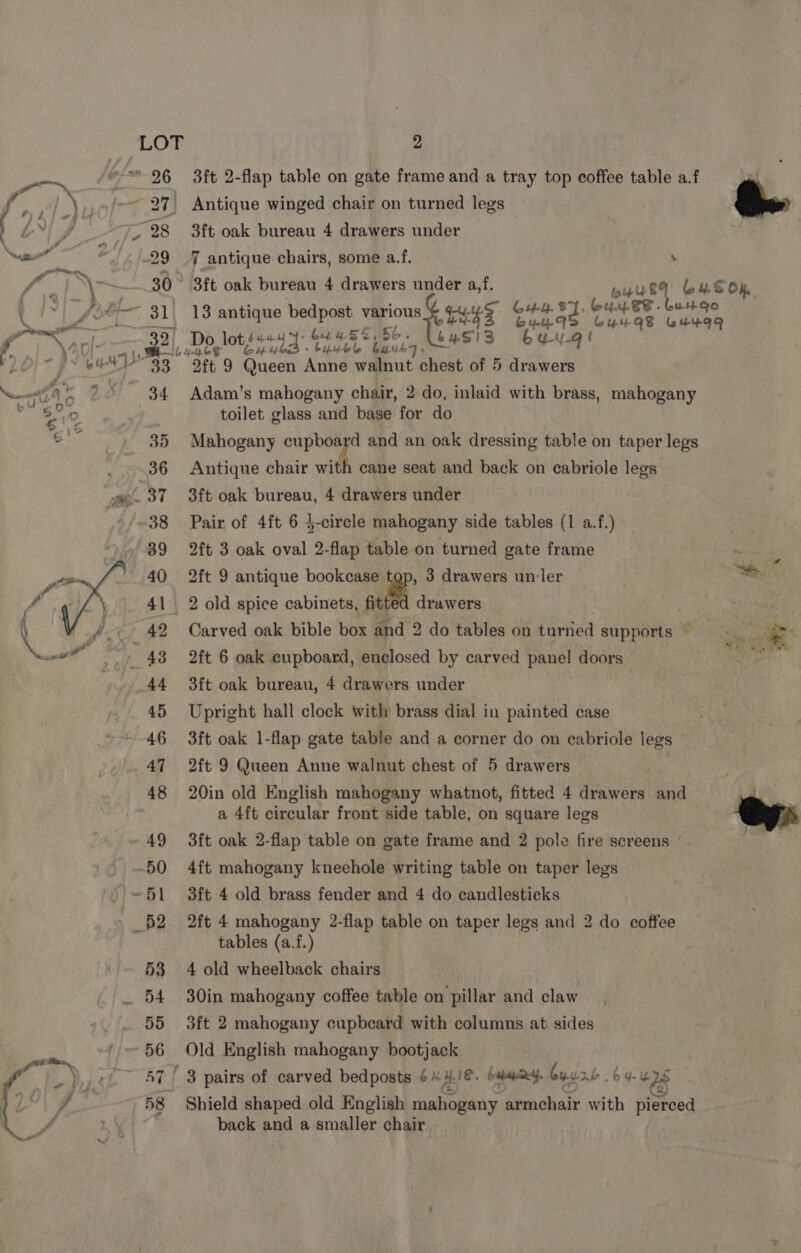 LOT 2
26 3ft 2-flap table on gate frame and a tray top coffee table a.f
27 Antique winged chair on turned legs
28 3ft oak bureau 4 drawers under
29 7 antique chairs, some a.f.
30 3ft oak bureau 4 drawers under a,f.
31 13 antique bedpost various
32 Do lot
33 2ft 9 Queen Anne walnut chest of 5 drawers
34 Adam's mahogany chair, 2 do, inlaid with brass, mahogany
toilet glass and base for do
35 Mahogany cupboard and an oak dressing table on taper legs
36 Antique chair with cane seat and back on cabriole legs
37 3ft oak bureau, 4 drawers under
38 Pair of 4ft 6 ½-circle mahogany side tables (1 a.f.)
39 2ft 3 oak oval 2-flap table on turned gate frame
40 2ft 9 antique bookcase top, 3 drawers under
41 2 old spice cabinets, fitted drawers
42 Carved oak bible box and 2 do tables on turned supports
43 2ft 6 oak cupboard, enclosed by carved panel doors
44 3ft oak bureau, 4 drawers under
45 Upright hall clock with brass dial in painted case
46 3ft oak 1-flap gate table and a corner do on cabriole legs
47 2ft 9 Queen Anne walnut chest of 5 drawers
48 20in old English mahogany whatnot, fitted 4 drawers and
a 4ft circular front side table, on square legs
49 3ft oak 2-flap table on gate frame and 2 pole fire screens
50 4ft mahogany kneehole writing table on taper legs
51 3ft 4 old brass fender and 4 do candlesticks
52 2ft 4 mahogany 2-flap table on taper legs and 2 do coffee
tables (a.f.)
53 4 old wheelback chairs
54 30in mahogany coffee table on pillar and claw
55 3ft 2 mahogany cupboard with columns at sides
56 Old English mahogany bootjack
57 3 pairs of carved bedposts
58 Shield shaped old English mahogany armchair with pierced
back and a smaller chair